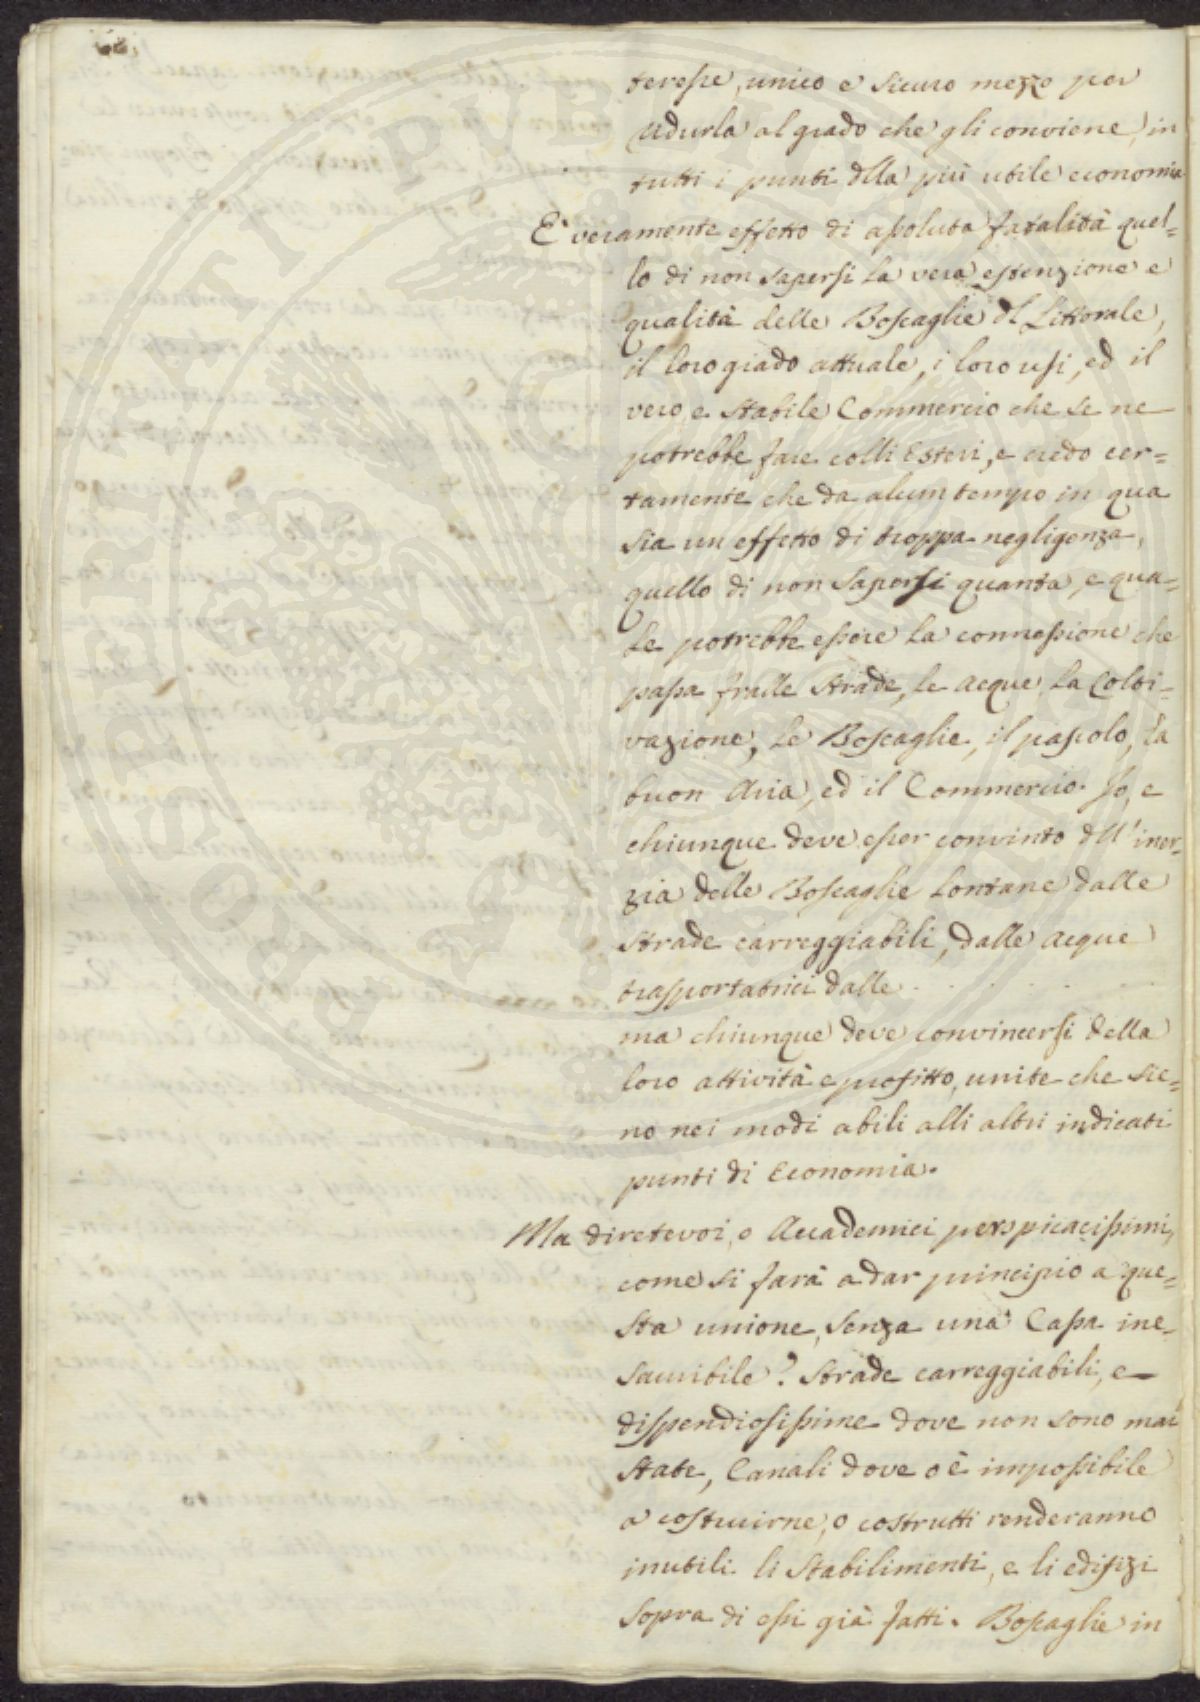 teresse, unico e sicuro mezzo per
ridurla al grado che gli conviene, in
tutti i punti dlla più utile economia
E' veramente effetto di assoluta fatalità quel=
lo di non sapersi la vera estenzione e
qualità delle Boscaglie dl Littorale,
il loro grado attuale, i loro usi, ed il
vero e stabile Commercio che se ne
potrebbe fare colli Esteri, e credo cer=
tamente che da alcun tempo in qua
sia un effetto di troppa negligenza,
quello di non sapersi quanta, e qua=
le potrebbe essere la connessione che
passa fralle strade, le acque, la Colti=
vazione, le Boscaglie, il pascolo, la
buon Aria, ed il Commercio. Io, e
chiunque deve esser convinto dll' iner=
zia delle Boscaglie lontane dalle
strade carreggiabili, dalle acque
trasportatrici dalle . . . . . .
ma chiunque deve convincersi della
loro attività e profitto, unite che sie=
no nei modi abili alli altri indicati
punti di Economia.
Ma direte voi, o Accademici perspicacissimi,
come si farà a dar principio a que=
sta unione, senza una Cassa ine=
sauribile? Strade carreggiabili, e
dispendiosissime dove non sono mai
state, Canali dove o è impossibile
a costruirne, o costrutti renderanno
inutili li stabilimenti, e li edifizi
sopra di essi già fatti. Boscaglie in
POSTERITATI PUBLICAE